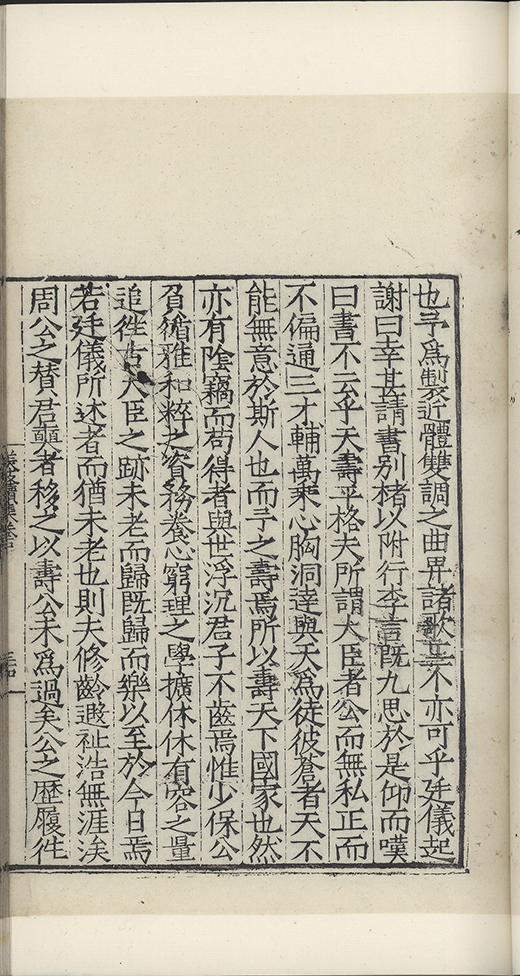 也予爲製近體雙調之曲畀諸歌童不亦可乎廷儀起
謝曰幸甚請書别楮以附行李言既九思於是仰而嘆
曰書不云乎天壽平格夫所謂大臣者公而無私正而
不偏通三才輔萬乘心胸洞達與天爲徒彼蒼者天不
能無意於斯人也而予之壽焉所以壽天下國家也然
亦有陰竊而苟得者與世浮沉君子不齒焉惟少保公
負循雅和粹之資務養心窮理之學擴休休有容之量
追徃古大臣之跡未老而歸既歸而樂以至於今日焉
若廷儀所述者而猶未老也則夫修齡遐祉浩無涯涘
周公之替君奭者移之以壽公未爲過矣公之歷履徃